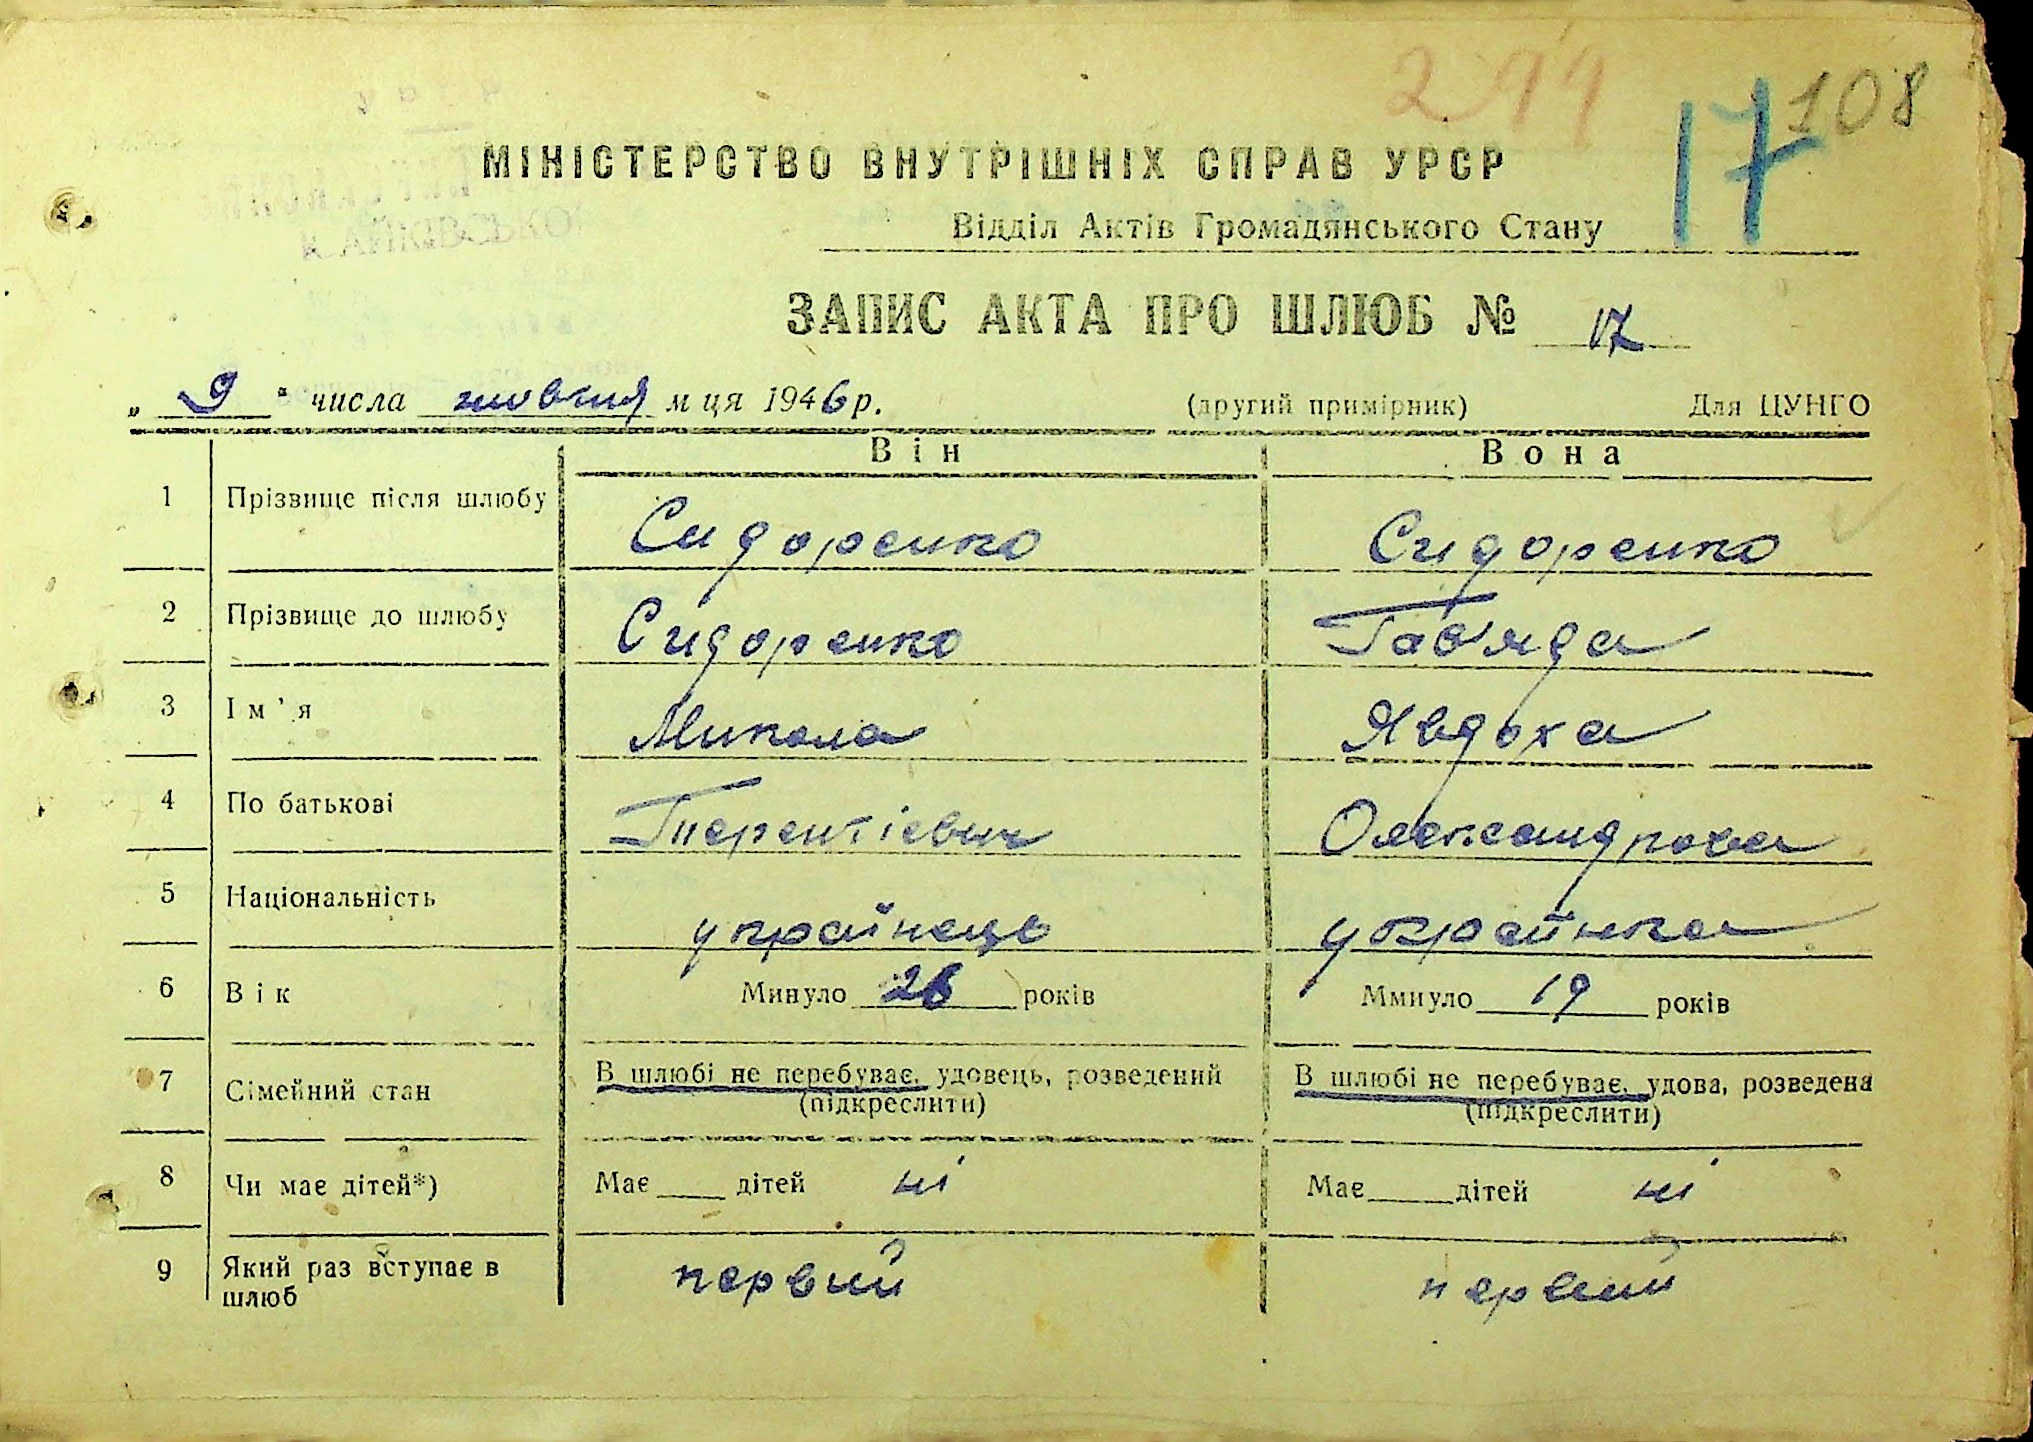 294
17 108
МІНІСТЕРСТВО ВНУТРІШНІХ СПРАВ УРСР
Відділ Актів Громадянського Стану
ЗАПИС АКТА ПРО ШЛЮБ № 17
„ 9 " числа жовтня м ця 1946 р. (другий примірник) Для ЦУНГО
Він Вона
1 Прізвище після шлюбу Сидоренко Сидоренко
2 Прізвище до шлюбу Сидоренко Гав'яда
3 Ім'я Микола Явдоха
4 По батькові Терентієвич Олександровна
5 Національність українець українка
6 Вік Минуло 26 років Ммнуло 19 років
7 Сімейний стан В шлюбі не перебуває, удовець, розведений В шлюбі не перебуває, удова, розведена
(підкреслити) (підкреслити)
8 Чи має дітей*) Має ____ дітей ні Має ____ дітей ні
9 Який раз вступає в первий первий
шлюб